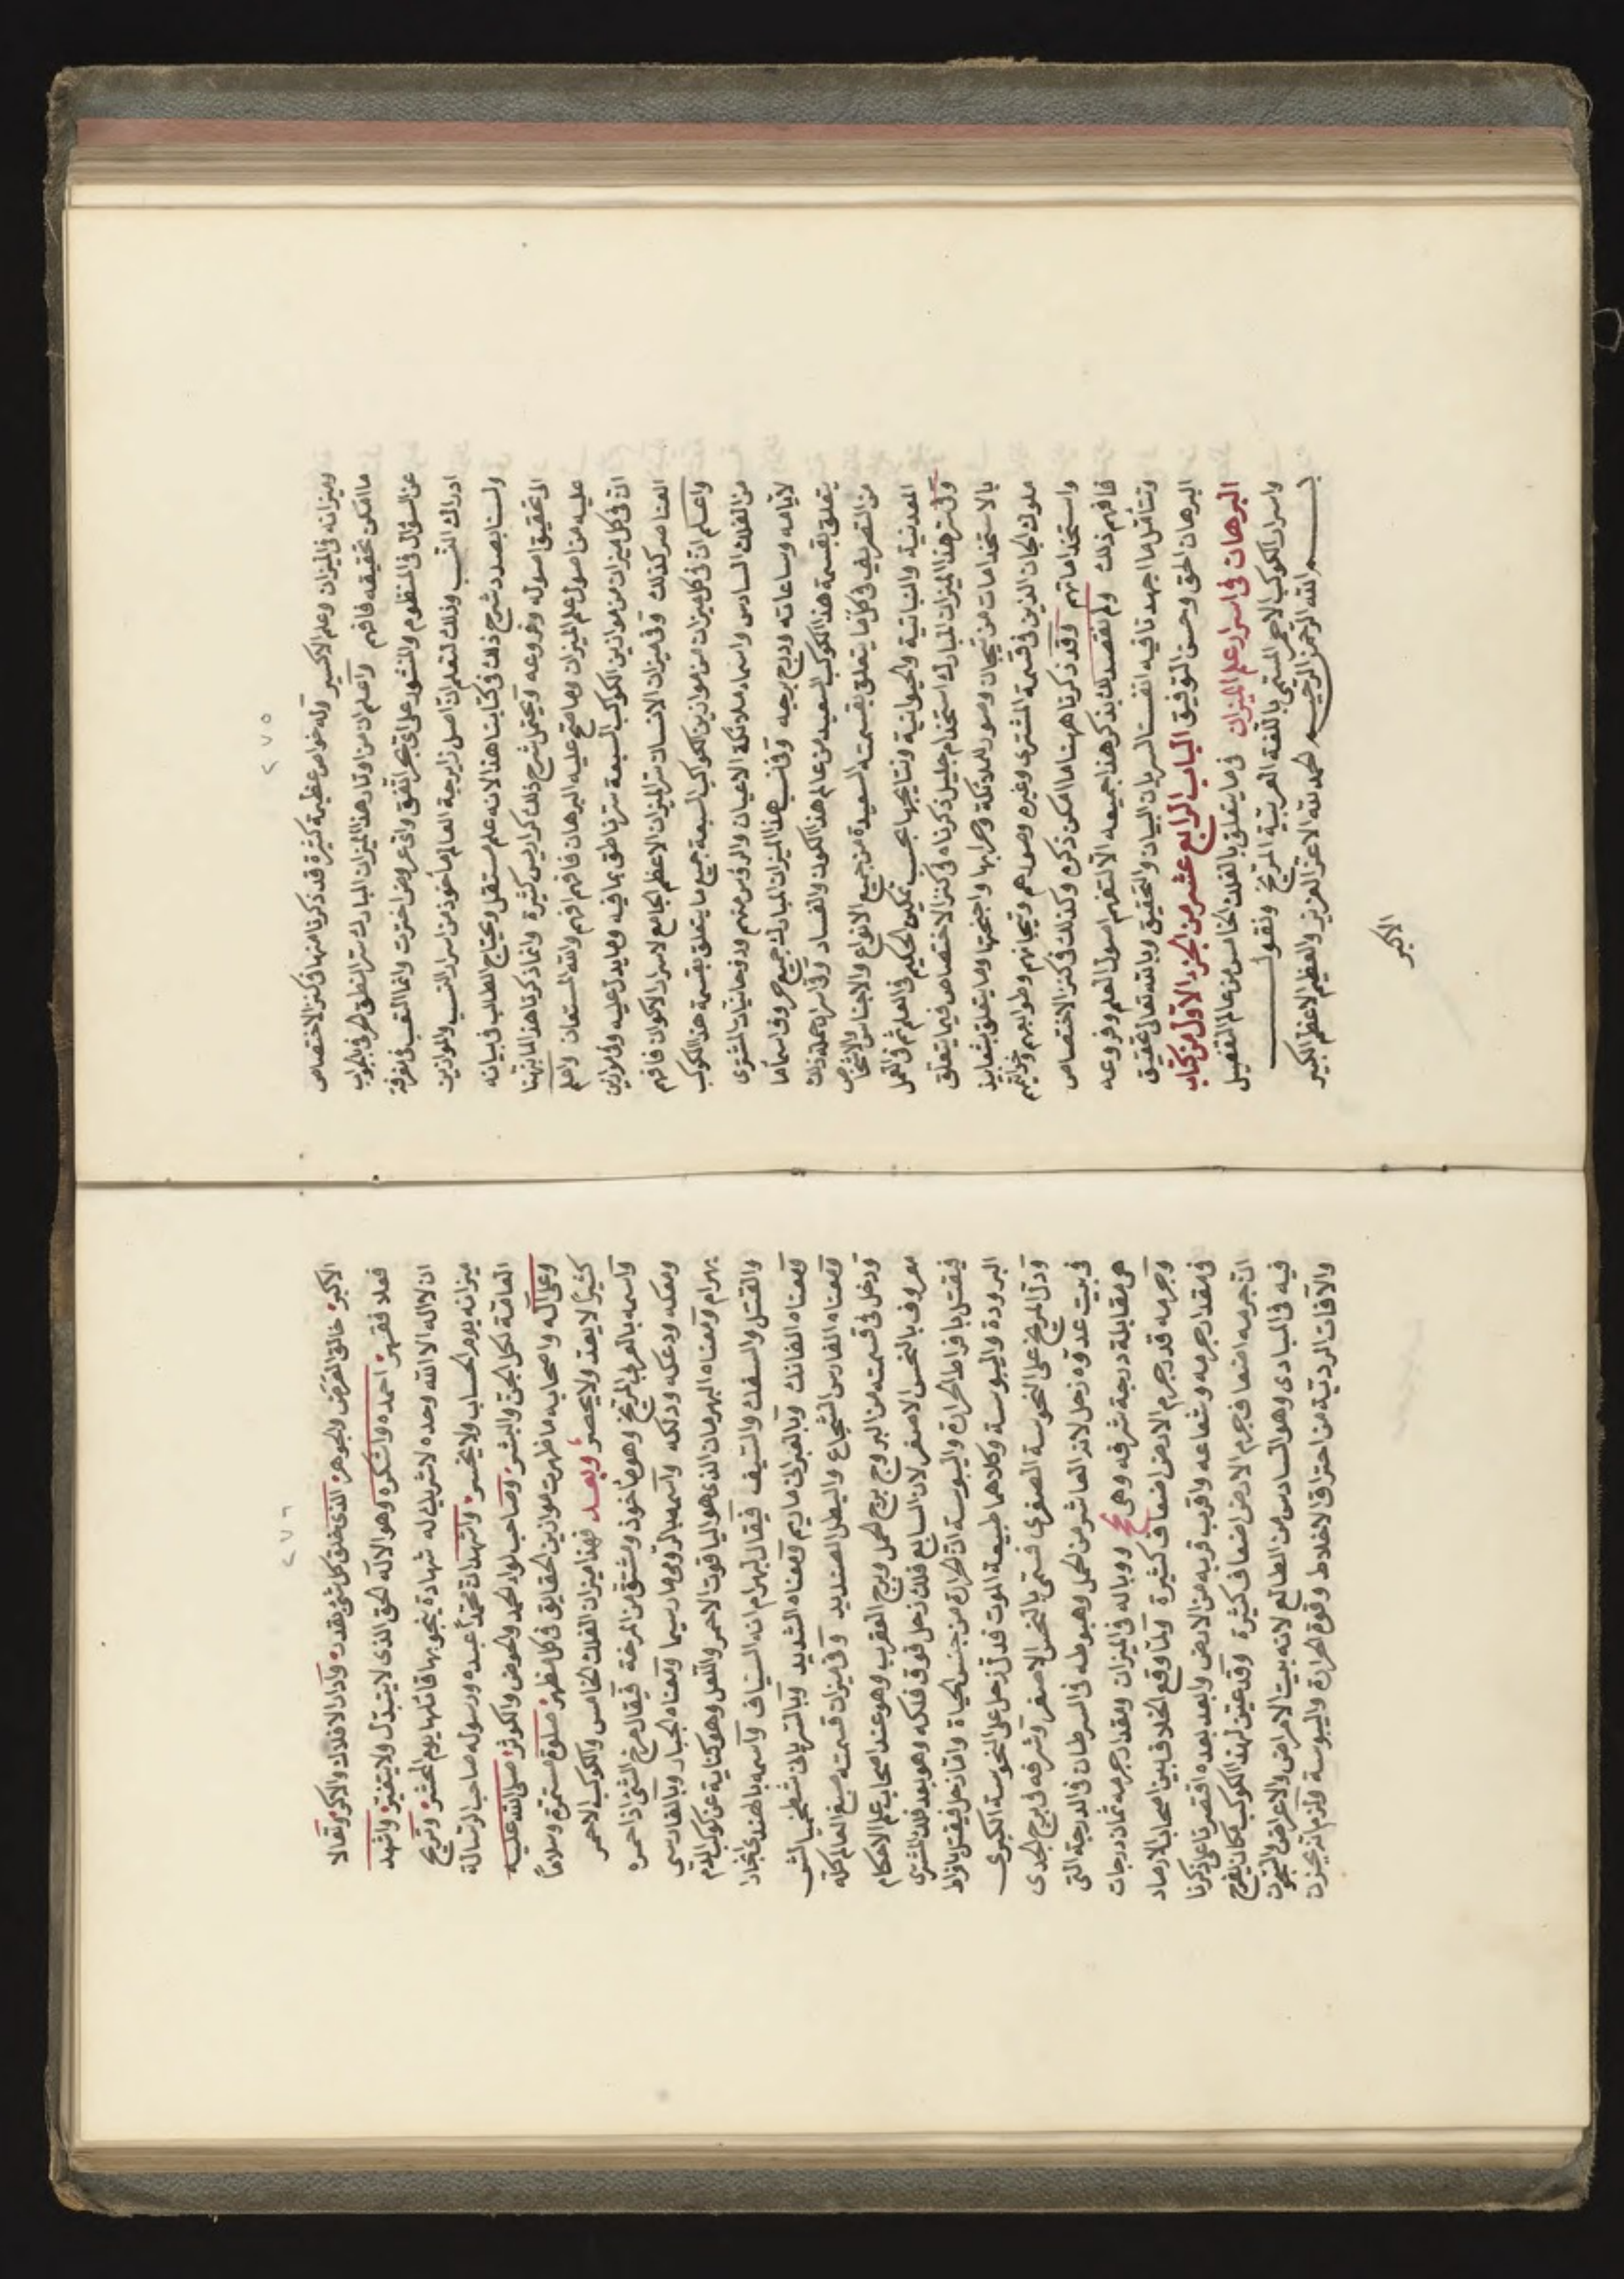 ٢٧٥
وميزانه في الميزان وعلم الاكسير وله خواص عظيمة كثيرة قد ذكرنا منها في كنز الاختصاص
ما امكن تحقيقه فافهم واعلم ان من اوتاد هذا الميزان المبارك سر النطق الحرفي بالجواب
عن السؤال في المنظوم والمنثور على اي بحر اتفق واي عروض اخترت وانما التعب في معرفة
ادراك النسب وذلك لتعلم ان اصل زايرجة العالم مأخوذ من اسرار النسب والموازين
ولسنا بصدد شرح ذلك في كتابنا هذا لانه علم مستقل ويحتاج الطالب في بيانه
الى تحقيق اصوله وفروعه ويحتمل شرح ذلك كراريس كثيرة وانما ذكرنا هذا لما نبهنا
عليه من اصول علم الميزان وما صح عليه البرهان فافهم افهم والله المستعان واعلم
ان في كل ميزان من موازين الكواكب السبعة سر ناطق بما فيه وما يدل عليه وفي موازين
العناصر كذلك وفي ميزان الانسان سر الميزان الاعظم الجامع لاسرار الاكوان فافهم
واعلم ان في كل ميزان من موازين الكواكب السبعة جميع ما يتعلق بقسمة هذا الكوكب
من الفلك السادس واسماء ملائكة الاعيان والرؤس منهم وروحانيات المشترى
لايامه وساعاته ودرج برجيه وفي نسب هذا الميزان المبارك جميع حروف اسماء ما
يتعلق بقسمة هذا الكوكب السعيد من عالم هذا الكون والفساد وفي اسرار جملة ذلك
من التصريف في كل ما يتعلق بقسمته السعيدة من جميع الانواع والاجناس والاشخاص
المعدنية والنباتية والحيوانية ونتايجها بحسب تمكين الحكيم في العلم ثم في العمل
وفي سر هذا الميزان المبارك استخدام جليل ذكرناه في كنز الاختصاص فيما يتعلق
بالاستخدامات من تيجان وصور الملائكة وحرابها واجنحتها وما يتعلق بشعابيذ
ملوك الجان الذين في قسمة المشترى وغيره وصورهم وتيجانهم وطوابعهم وخواتيم
واستخداماتهم وقد ذكرنا ههنا ما امكن ذكره وكذلك في كنز الاختصاص
فافهم ذلك ولم نقصد بك بذكر هذا جميعه الا لتفهم اصول العلم وفروعه
وتتأمل ما اجهدنا فيه انفسنا لسريان البيان والتحقيق وبالله تعالى تحقيق
البرهان الحق وحسن التوفيق الباب الرابع عشر من الجزء الاول من كتاب
البرهان في اسرار علم الميزان في ما يتعلق بالفلك الخامس من عالم التفصيل
واسرار الكوكب الاحمر المسمى باللغة العربية المريخ ونقول
بسم الله الرحمن الرحيم الحمد لله الاعز العزيز والعظيم الاعظم الكبير
الاكبر
٢٧٦
الاكبر خالق العرض والجوهر الذي خلق كل شئ بقدر وادار الافلاك والاكر وتعالا
فعلا فقهر احمده واشكره وهو الاله الحق الذي لا يتبدل ولا يتغير واشهد
ان لا اله الا الله وحده لا شريك له شهادة ينجو بها قائلها يوم المحشر وترجح
ميزانه يوم الحساب ولا يخسر واشهد ان محمداً عبده ورسوله صاحب الرسالة
العامة لكل الجن والبشر وصاحب لواء الحمد والحوض والكوثر صلى الله عليه
وعلى آله واصحابه ما ظهرت موازين الحقايق في كل مظهر صلوة مستمرة وسلاماً
كثيراً لا يعد ولا يحصر وبعد فهذا ميزان الفلك الخامس والكوكب الاحمر
واسمه بالعربي المريخ وهو مأخوذ ومشتق من المرخة فيقال مرخ الشئ اذا حمره
ومعكه ودعكه ودلكه واسمه بالرومي مارسيما ومعناه الجبار وبالفارسي
بهرام ومعناه البهرمان الذي هو الياقوت الاحمر واللعل وهو كناية عن كوكب الدم
والقتل والسفك والسيف فيقال لبهرام انه السياف واسمه بالهندي انجارا
ومعناه الفاتك وبالعبراني ماديم ومعناه الشديد وبالسرياني شطخيما الشر
ومعناه الفارس الشجاع والبطل الصنديد وفي ميزان قسمته صبغ العالم كله
ودخل في قسمته من البروج برج الحمل وبرج العقرب وهو عند اصحاب علم الاحكام
معروف بالنحس الاصغر لان السابع فلك زحل فوق فلكه وهو بعد فلك المشترى
فيقتل بافراط الحرارة واليبوسة لان الحرارة من جنس الحياة واما زحل فيقتل بافراط
البرودة واليبوسة وكلاهما طبيعة الموت فدل زحل على النحوسة الكبرى
ودل المريخ على النحوسة الصغرى فسمى بالنحس الاصغر وشرفه في برج الجدى
في بيت عدوه زحل لانه العاشر من الحمل وهبوطه في السرطان في الدرجة التي
هي مقابلة درجة شرفه وهي كح ووباله في الميزان ومقدار جرمه ثمان درجات
وجرمه قدر جرم الارض اضعاف كثيرة ولما وقع الخلاف بين اصحاب الارصاد
في مقدار جرمه وشعاعه واقرب قربه من الارض وابعد بعده اقتصرنا على ذكرنا
ان جرمه اضعاف جرم الارض اضعاف كثيرة وقد عين لهذا الكوكب مكان يفرح
فيه في المبادى وهو السادس من الطالع لانه بيت الامراض والاعراض والسجون
والآفات الردية من احتراق الاخلاط وقوة الحرارة واليبوسة ولزم تريحزن